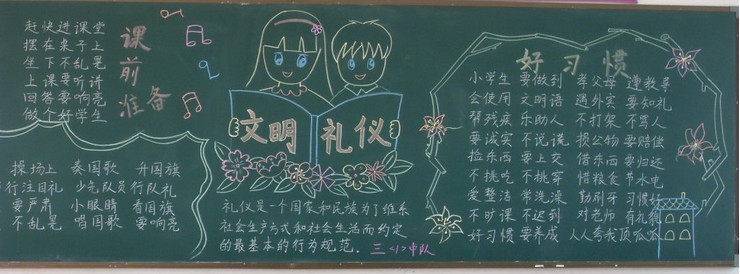 课前准备
赶快进课堂
摆在桌子上
坐下不乱晃
上课要听讲
回答要响亮
做个好学生
操场上 奏国歌 升国旗
行注目礼 少先队员行队礼
要严肃 小眼睛 看国旗
不乱晃 唱国歌 要响亮
文明礼仪
礼仪是一个国家和民族为了维系
社会生产方式和社会生活而约定
的最基本的行为规范。三（1）中队
好习惯
小学生 要做到 孝父母 遵教导
会使用 文明语 遇外宾 要知礼
帮残疾 乐助人 不打架 不骂人
要诚实 不说谎 损公物 要赔偿
捡东西 要上交 借东西 要归还
不挑吃 不挑穿 惜粮食 节水电
爱整洁 常洗澡 勤刷牙 习惯好
不旷课 不迟到 对老师 有礼貌
好习惯 要养成 人人夸我顶呱呱